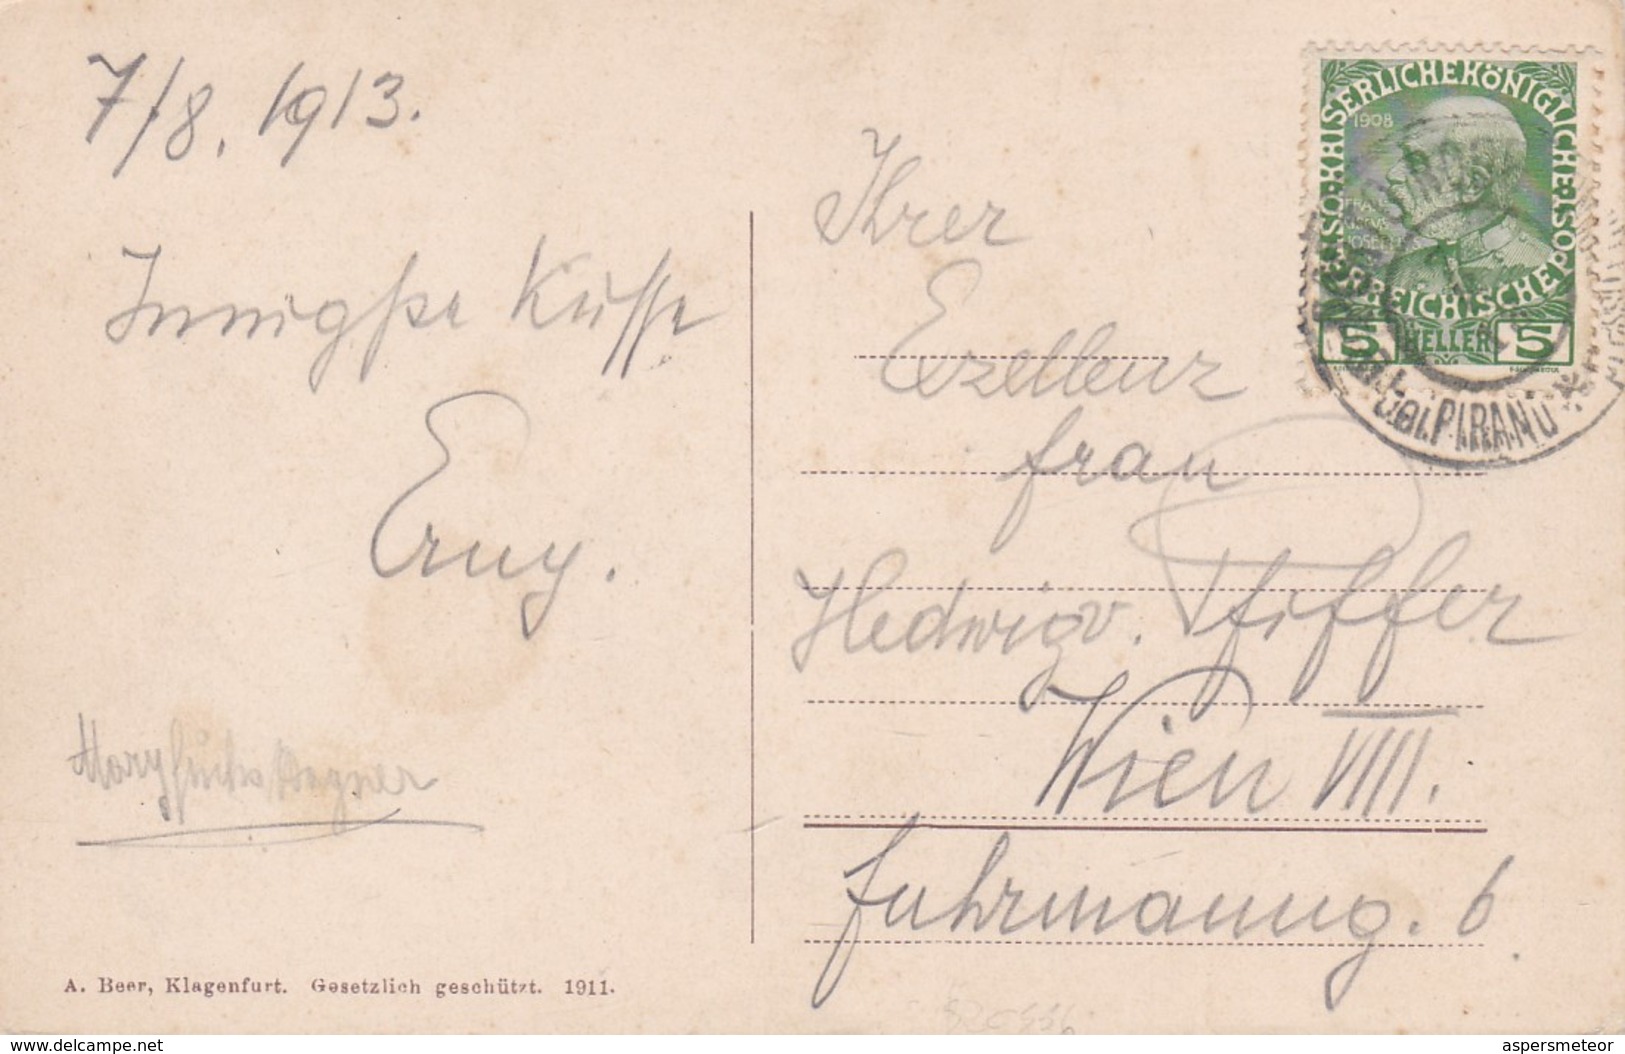 7/8. 1913.
Innigste Küsse
Erny.
Mary Fuchs Wagner
A. Beer, Klagenfurt. Gesetzlich geschützt. 1911.
Ihrer
Exzellenz
Frau
Hedwig v. Pfiffer
Wien VIII.
Fuhrmanng. 6
KAISERLICHE KÖNIGLICHE
ÖSTERREICHISCHE POST
1908
5 HELLER 5
PIRANO
www.delcampe.net
aspersmeteor